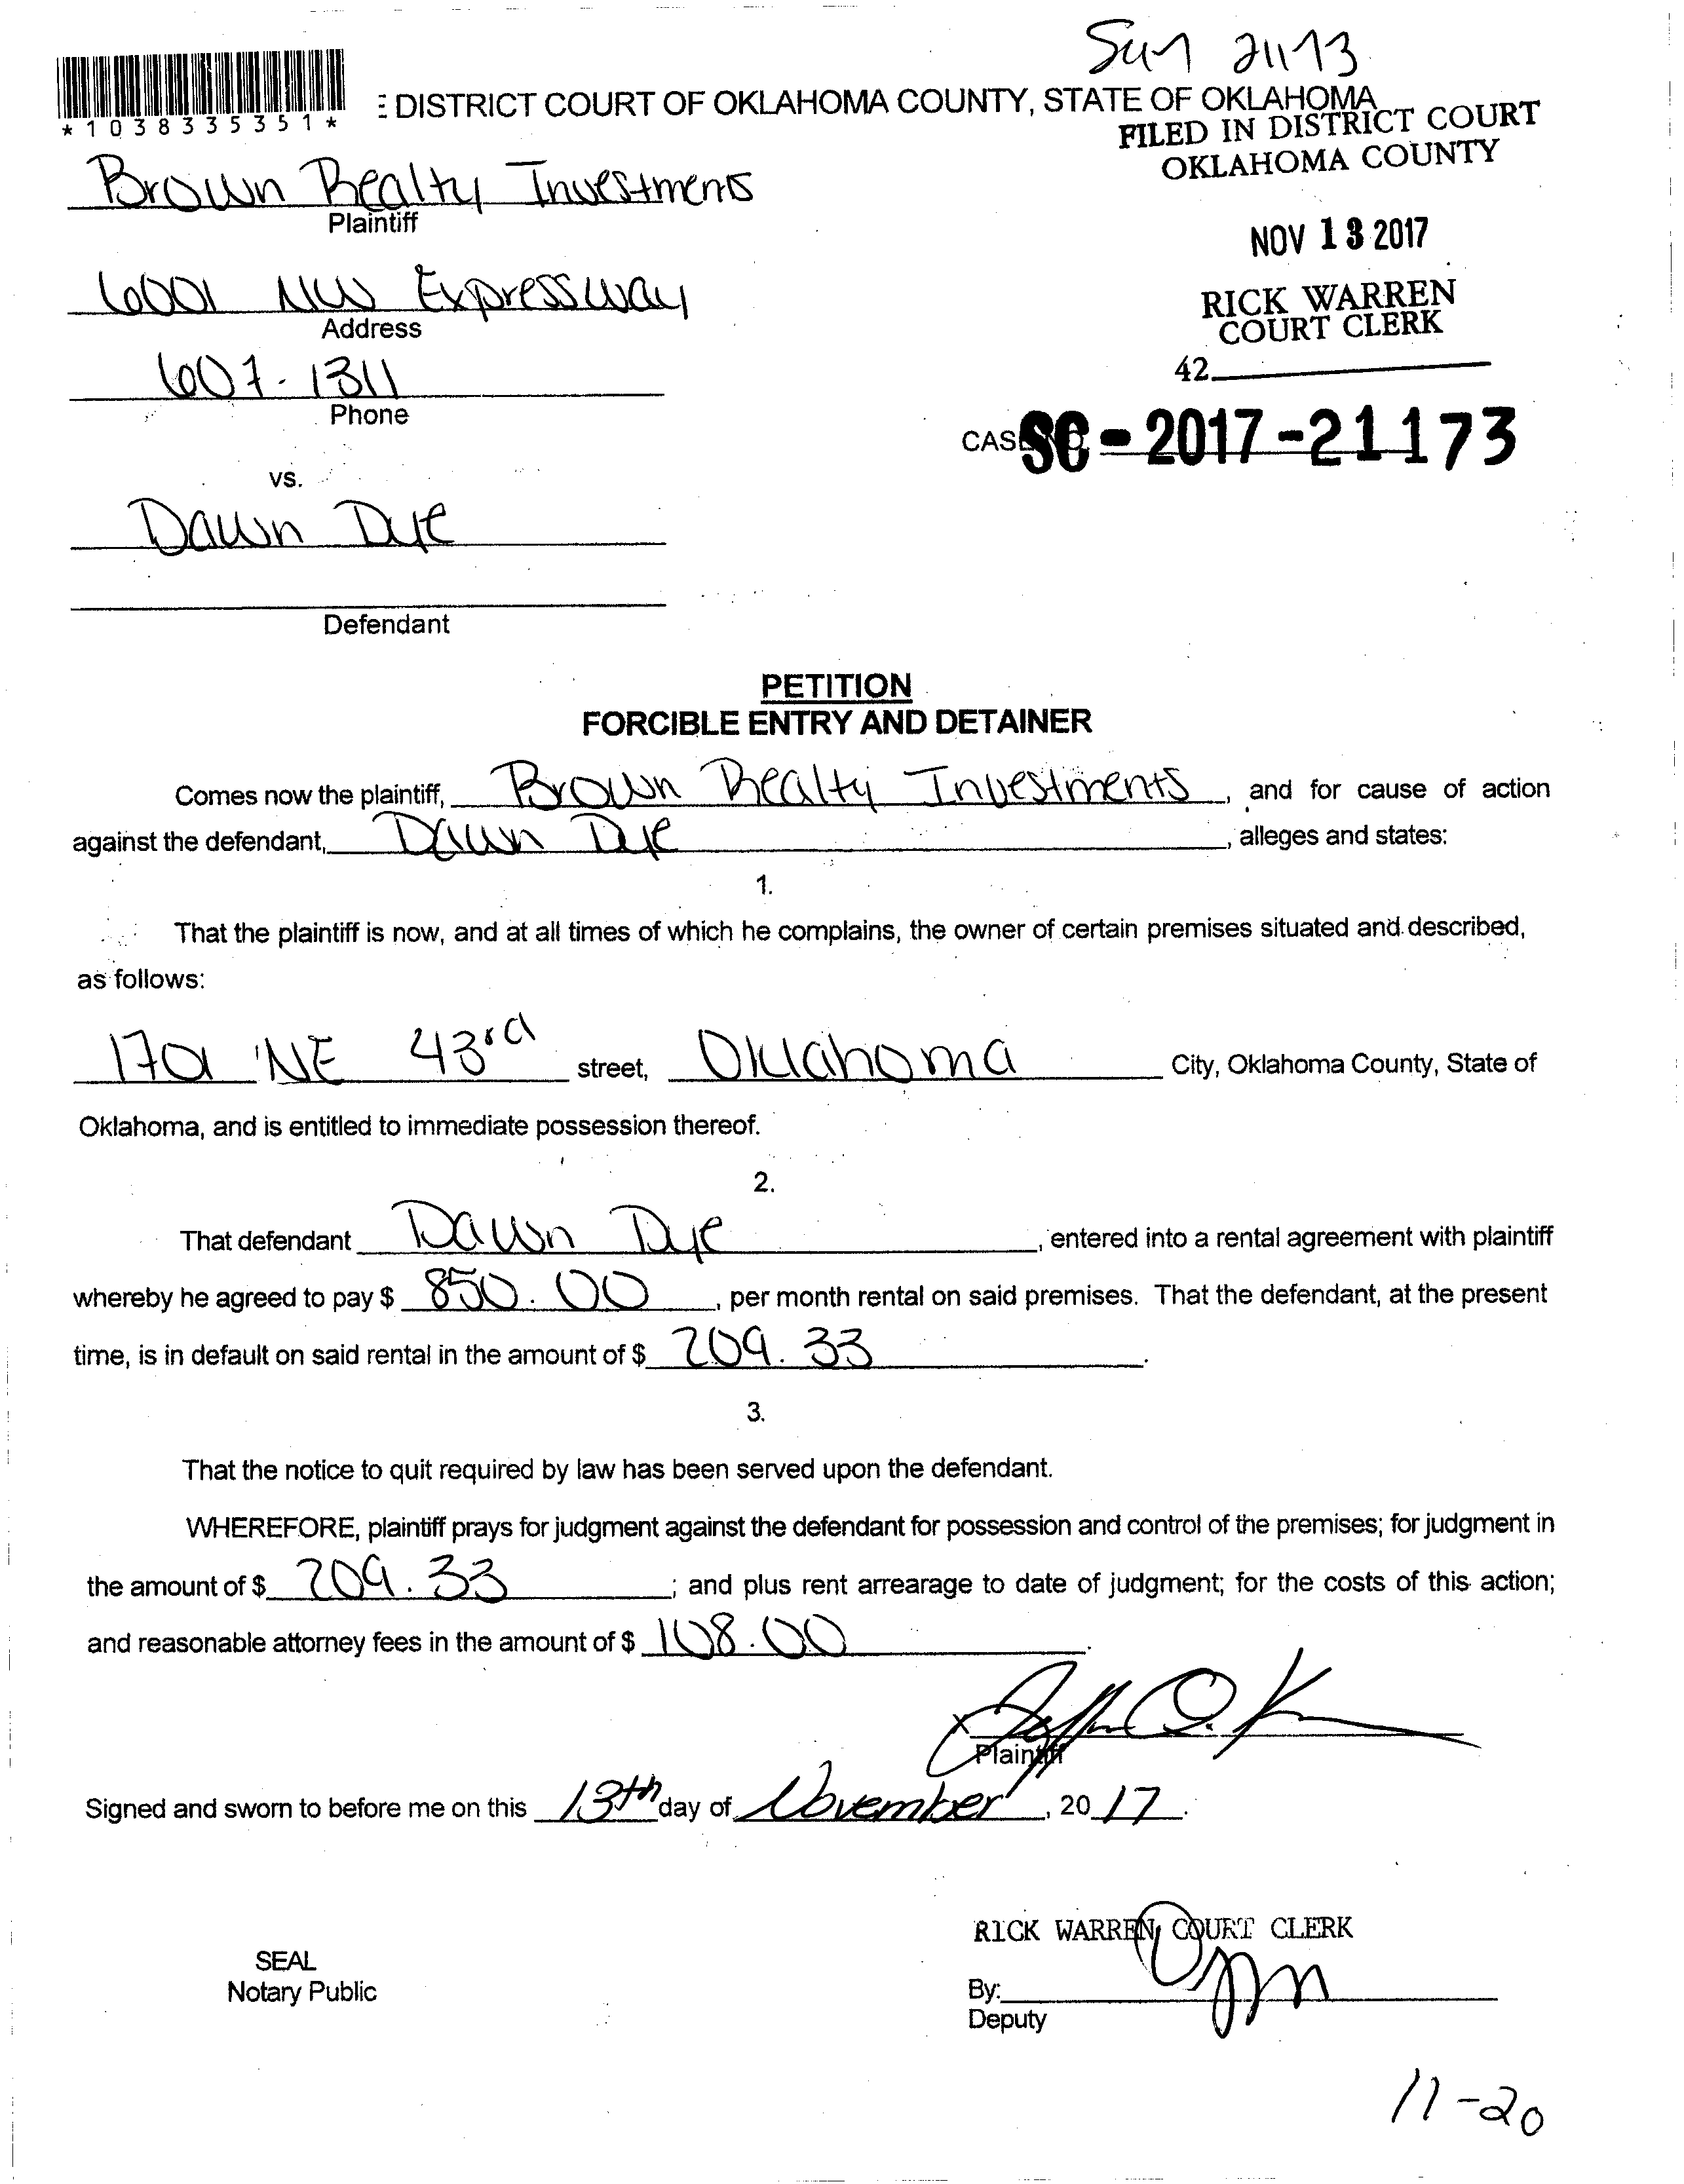 Sun 21173
*1038335351*
E DISTRICT COURT OF OKLAHOMA COUNTY, STATE OF OKLAHOMA
FILED IN DISTRICT COURT
OKLAHOMA COUNTY
Brown Realty Investments
Plaintiff
NOV 13 2017
6001 NW Expressway
Address
RICK WARREN
COURT CLERK
42
607-1311
Phone
CASE NO. SC-2017-21173
vs.
Dawn Dye
Defendant
PETITION
FORCIBLE ENTRY AND DETAINER
Comes now the plaintiff, Brown Realty Investments, and for cause of action
against the defendant, Dawn Dye, alleges and states:
1.
That the plaintiff is now, and at all times of which he complains, the owner of certain premises situated and described,
as follows:
1701 NE 43rd street, Oklahoma City, Oklahoma County, State of
Oklahoma, and is entitled to immediate possession thereof.
2.
That defendant Dawn Dye, entered into a rental agreement with plaintiff
whereby he agreed to pay $ 850.00, per month rental on said premises. That the defendant, at the present
time, is in default on said rental in the amount of $ 209.33.
3.
That the notice to quit required by law has been served upon the defendant.
WHEREFORE, plaintiff prays for judgment against the defendant for possession and control of the premises; for judgment in
the amount of $ 209.33; and plus rent arrearage to date of judgment; for the costs of this action;
and reasonable attorney fees in the amount of $ 108.00.
X
Plaintiff
Signed and sworn to before me on this 13th day of November, 20 17.
RICK WARREN, COURT CLERK
SEAL
Notary Public
By:
Deputy
11-20